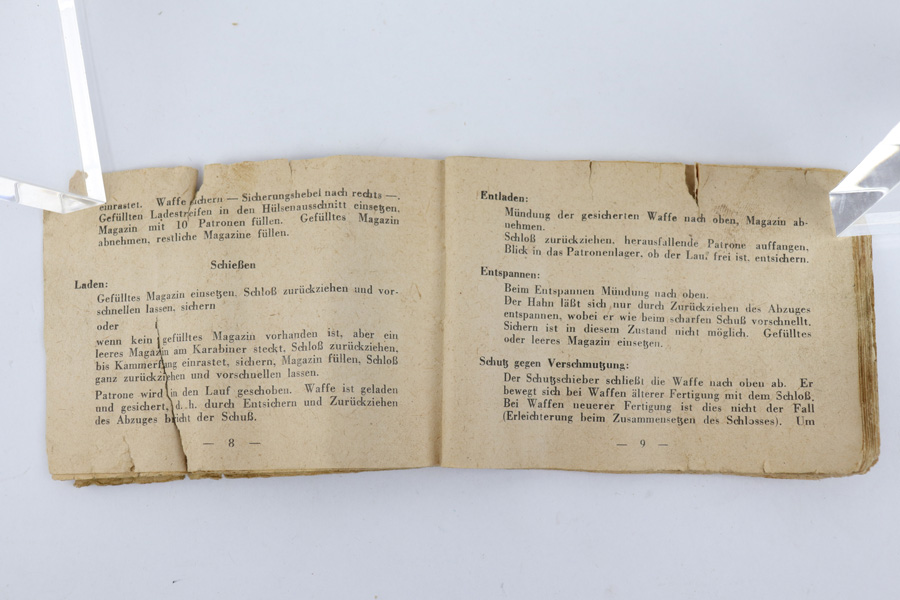 einrastet. Waffe sichern — Sicherungshebel nach rechts —.
Gefüllten Ladestreifen in den Hülsenausschnitt einsetzen,
Magazin mit 10 Patronen füllen. Gefülltes Magazin
abnehmen, restliche Magazine füllen.
Schießen
Laden:
Gefülltes Magazin einsetzen, Schloß zurückziehen und vor-
schnellen lassen, sichern
oder
wenn kein gefülltes Magazin vorhanden ist, aber ein
leeres Magazin am Karabiner steckt, Schloß zurückziehen,
bis Kammerfang einrastet, sichern, Magazin füllen, Schloß
ganz zurückziehen und vorschnellen lassen.
Patrone wird in den Lauf geschoben. Waffe ist geladen
und gesichert, d. h. durch Entsichern und Zurückziehen
des Abzuges bricht der Schuß.
— 8 —
Entladen:
Mündung der gesicherten Waffe nach oben, Magazin ab-
nehmen.
Schloß zurückziehen, herausfallende Patrone auffangen,
Blick in das Patronenlager, ob der Lauf frei ist, entsichern.
Entspannen:
Beim Entspannen Mündung nach oben.
Der Hahn läßt sich nur durch Zurückziehen des Abzuges
entspannen, wobei er wie beim scharfen Schuß vorschnellt,
Sichern ist in diesem Zustand nicht möglich. Gefülltes
oder leeres Magazin einsetzen.
Schutz gegen Verschmutzung:
Der Schutzschieber schließt die Waffe nach oben ab. Er
bewegt sich bei Waffen älterer Fertigung mit dem Schloß.
Bei Waffen neuerer Fertigung ist dies nicht der Fall
(Erleichterung beim Zusammensetzen des Schlosses). Um
— 9 —